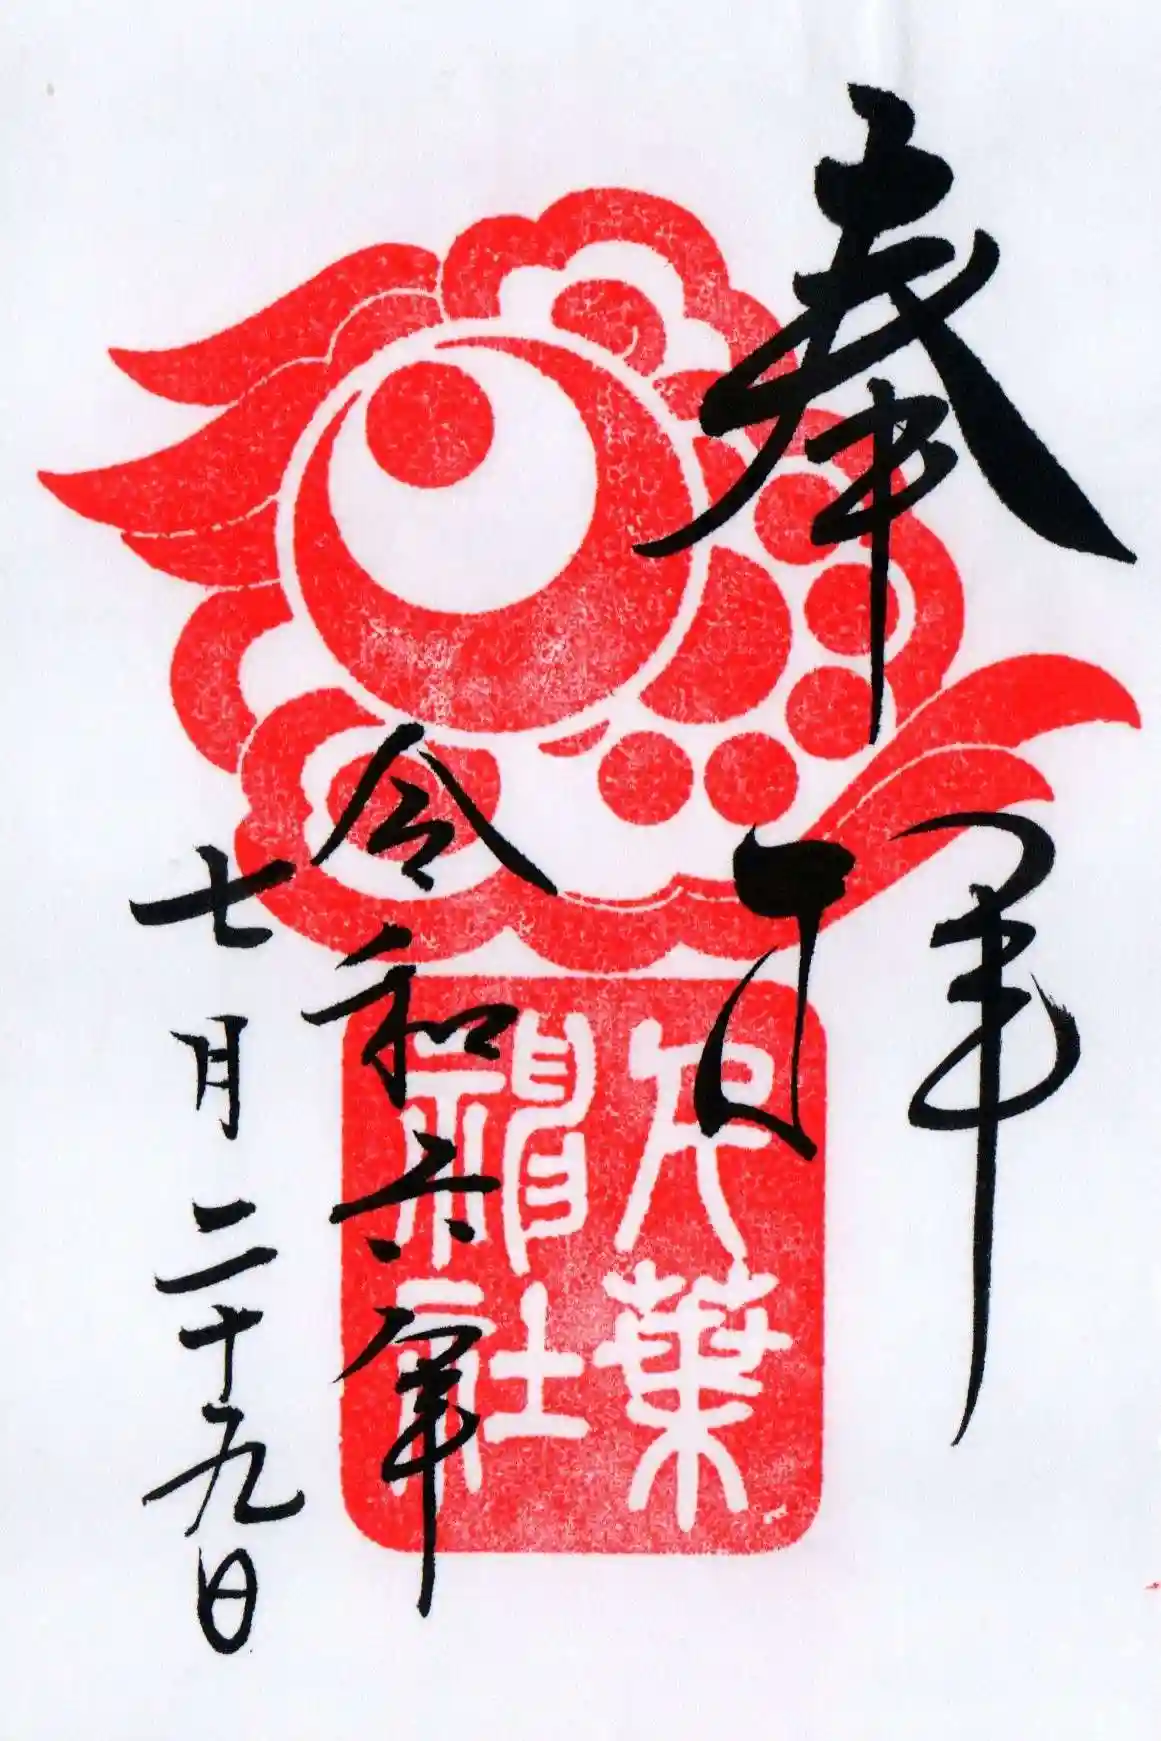 奉拝
葉
神社
令和六年
七月二十九日